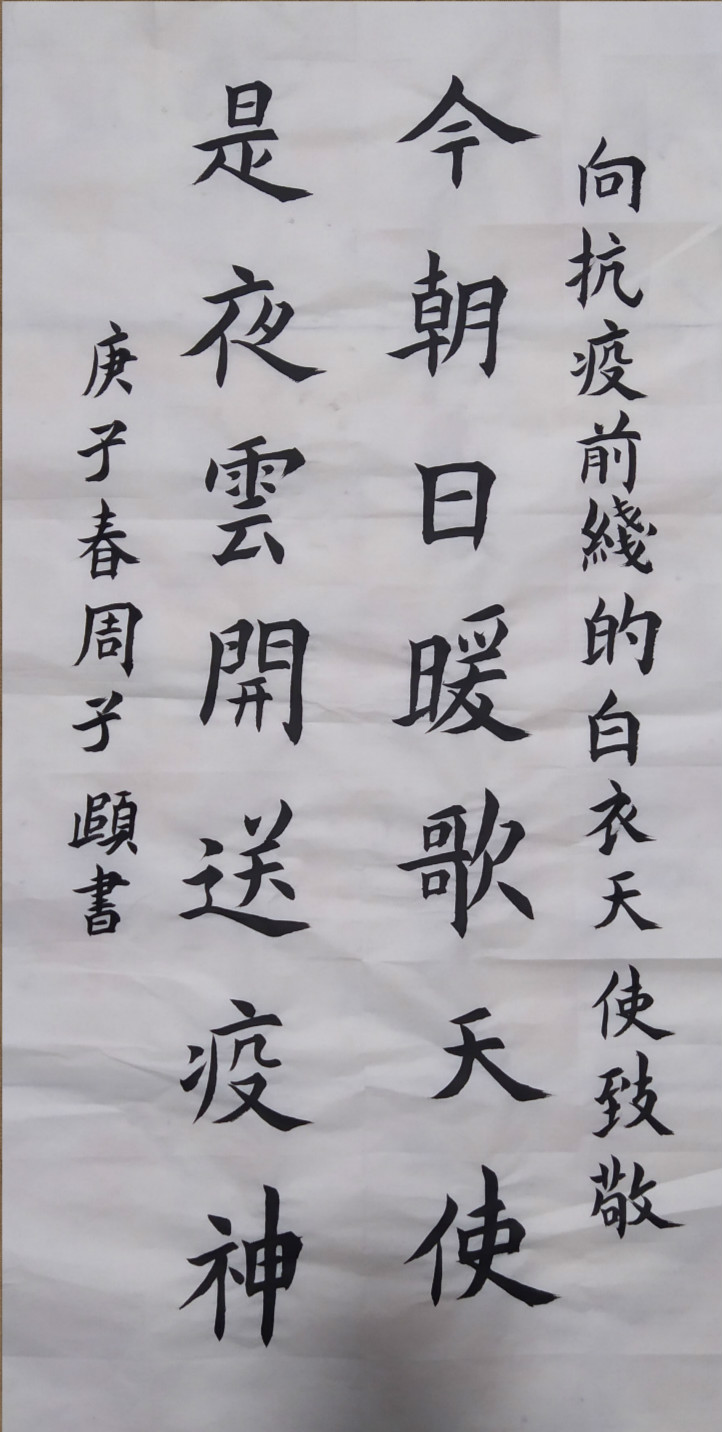 向抗疫前綫的白衣天使致敬
今朝日暖歌天使
是夜雲開送疫神
庚子春周子頤書